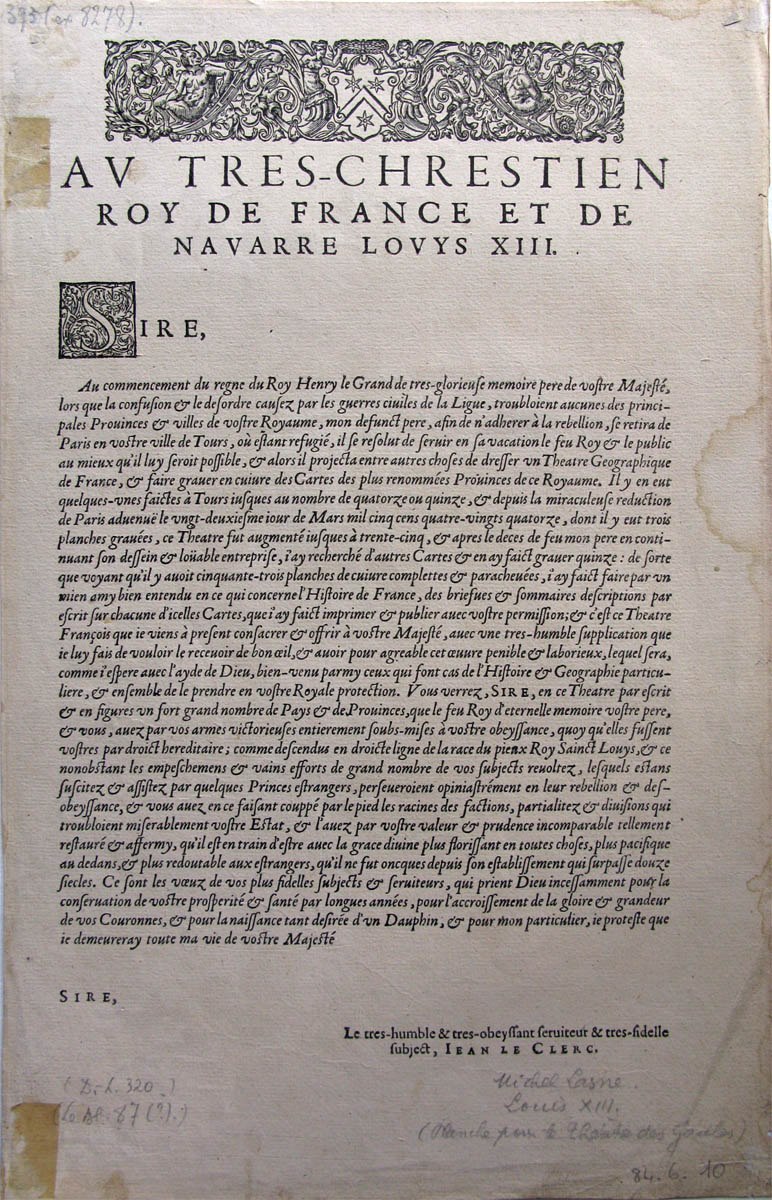 395 (ex 8278).
AV TRES-CHRESTIEN
ROY DE FRANCE ET DE
NAVARRE LOVYS XIII.
SIRE,
Au commencement du regne du Roy Henry le Grand de tres-glorieuse memoire pere de vostre Majesté,
lors que la confusion & le desordre causez par les guerres ciuiles de la Ligue, troubloient aucunes des princi-
pales Prouinces & villes de vostre Royaume, mon defunct pere, afin de n'adherer à la rebellion, se retira de
Paris en vostre ville de Tours, où estant refugié, il se resolut de seruir en sa vacation le feu Roy & le public
au mieux qu'il luy seroit possible, & alors il projecta entre autres choses de dresser vn Theatre Geographique
de France, & faire grauer en cuiure des Cartes des plus renommées Prouinces de ce Royaume. Il y en eut
quelques-vnes faictes à Tours iusques au nombre de quatorze ou quinze, & depuis la miraculeuse reduction
de Paris aduenuë le vngt-deuxiesme iour de Mars mil cinq cens quatre-vingts quatorze, dont il y eut trois
planches grauées, ce Theatre fut augmenté iusques à trente-cinq, & apres le deces de feu mon pere en conti-
nuant son dessein & loüable entreprise, i'ay recherché d'autres Cartes & en ay faict grauer quinze : de sorte
que voyant qu'il y auoit cinquante-trois planches de cuiure complettes & paracheuées, i'ay faict faire par vn
mien amy bien entendu en ce qui concerne l'Histoire de France, des briefues & sommaires descriptions par
escrit sur chacune d'icelles Cartes, que i'ay faict imprimer & publier auec vostre permission; & c'est ce Theatre
François que ie viens à present consacrer & offrir à vostre Majesté, auec vne tres-humble supplication que
ie luy fais de vouloir le receuoir de bon œil, & auoir pour agreable cet œuure penible & laborieux, lequel sera,
comme i'espere auec l'ayde de Dieu, bien-venu parmy ceux qui font cas de l'Histoire & Geographie particu-
liere, & ensemble de le prendre en vostre Royale protection. Vous verrez, SIRE, en ce Theatre par escrit
& en figures vn fort grand nombre de Pays & de Prouinces, que le feu Roy d'eternelle memoire vostre pere,
& vous, auez par vos armes victorieuses entierement soubs-mises à vostre obeyssance, quoy qu'elles fussent
vostres par droict hereditaire; comme descendus en droicte ligne de la race du pieux Roy Sainct Louys, & ce
nonobstant les empeschemens & vains efforts de grand nombre de vos subjects reuoltez, lesquels estans
suscitez & assistez par quelques Princes estrangers, perseueroient opiniastrément en leur rebellion & des-
obeyssance, & vous auez en ce faisant couppé par le pied les racines des factions, partialitez & diuisions qui
troubloient miserablement vostre Estat, & l'auez par vostre valeur & prudence incomparable tellement
restauré & affermy, qu'il est en train d'estre auec la grace diuine plus florissant en toutes choses, plus pacifique
au dedans, & plus redoutable aux estrangers, qu'il ne fut oncques depuis son establissement qui surpasse douze
siecles. Ce sont les vœuz de vos plus fidelles subjects & seruiteurs, qui prient Dieu incessamment pour la
conseruation de vostre prosperité & santé par longues années, pour l'accroissement de la gloire & grandeur
de vos Couronnes, & pour la naissance tant desirée d'vn Dauphin, & pour mon particulier, ie proteste que
ie demeureray toute ma vie de vostre Majesté
SIRE,
Le tres-humble & tres-obeyssant seruiteur & tres-fidelle
subject, IEAN LE CLERC.
(D.-L. 320.)
(Le Bl. 87 (?).)
Michel Lasne.
Louis XIII.
(Planche pour le théâtre des Gaules)
84.6.10